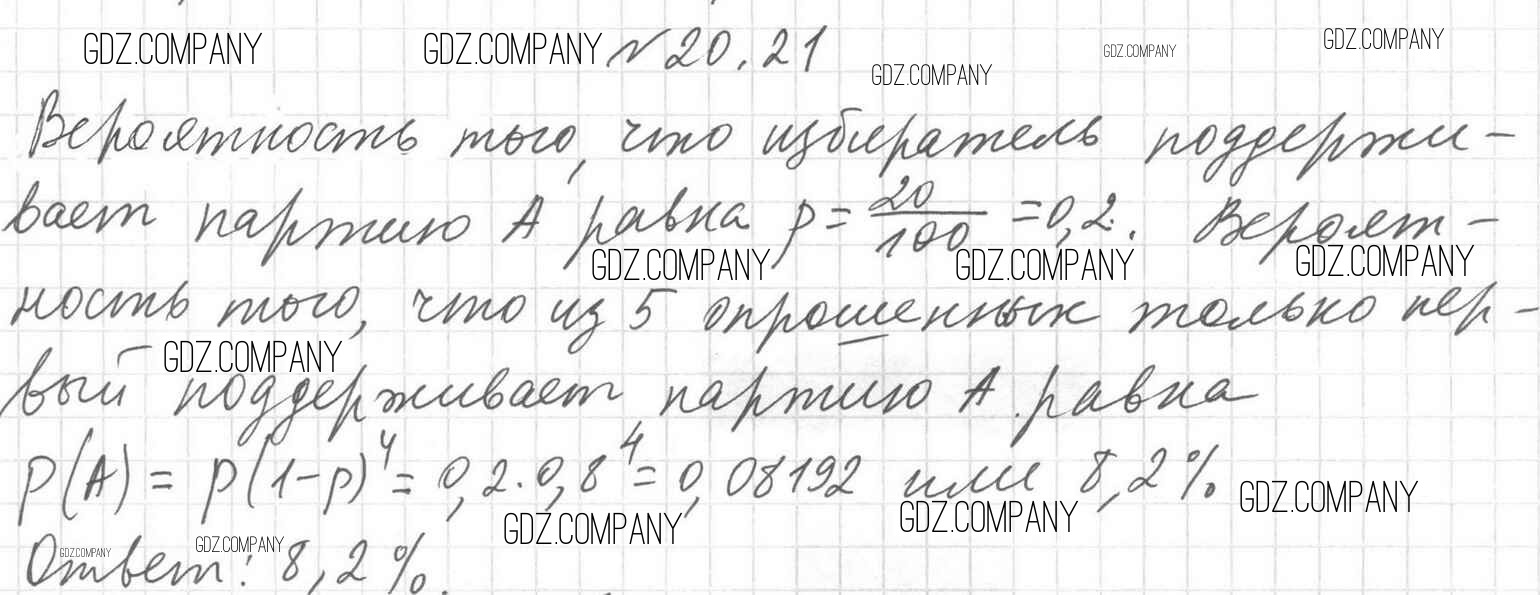 GDZ.COMPANY GDZ.COMPANY № 20.21 GDZ.COMPANY GDZ.COMPANY GDZ.COMPANY
Вероятность того, что избиратель поддержи-
вает партию А равна p = 20/100 = 0,2. Вероят-
GDZ.COMPANY GDZ.COMPANY GDZ.COMPANY
ность того, что из 5 опрошенных только пер-
GDZ.COMPANY
вый поддерживает партию А равна
P(A) = p(1-p)⁴ = 0,2·0,8⁴ = 0,08192 или 8,2%
GDZ.COMPANY GDZ.COMPANY GDZ.COMPANY
GDZ.COMPANY GDZ.COMPANY
Ответ: 8,2%.